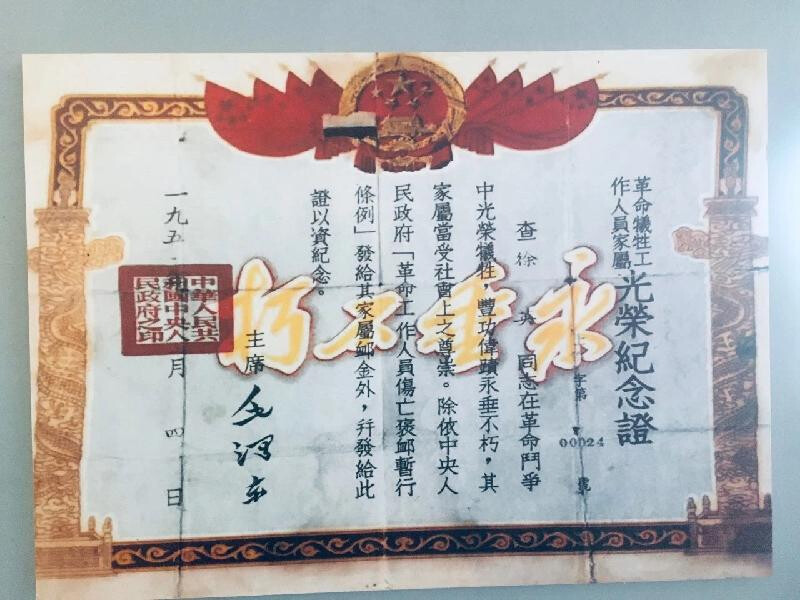 革命犧牲工
作人員家屬
光榮紀念證
字第
00024
號
查徐 同志在革命鬥爭
中光榮犧牲，豐功偉蹟永垂不朽，其
家屬當受社會上之尊崇。除依中央人
民政府「革命工作人員傷亡褒卹暫行
條例」發給其家屬卹金外，并發給此
證以資紀念。
主席 毛澤東
一九五 月四日
中華人民共
和國中央人
民政府之印
永垂不朽